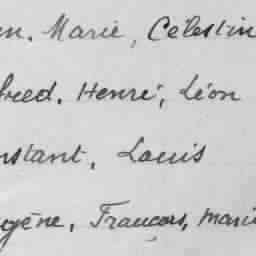 en. Marie, Célestin
fred. Henri, Léon
nstant, Louis
ugène, François, Marie